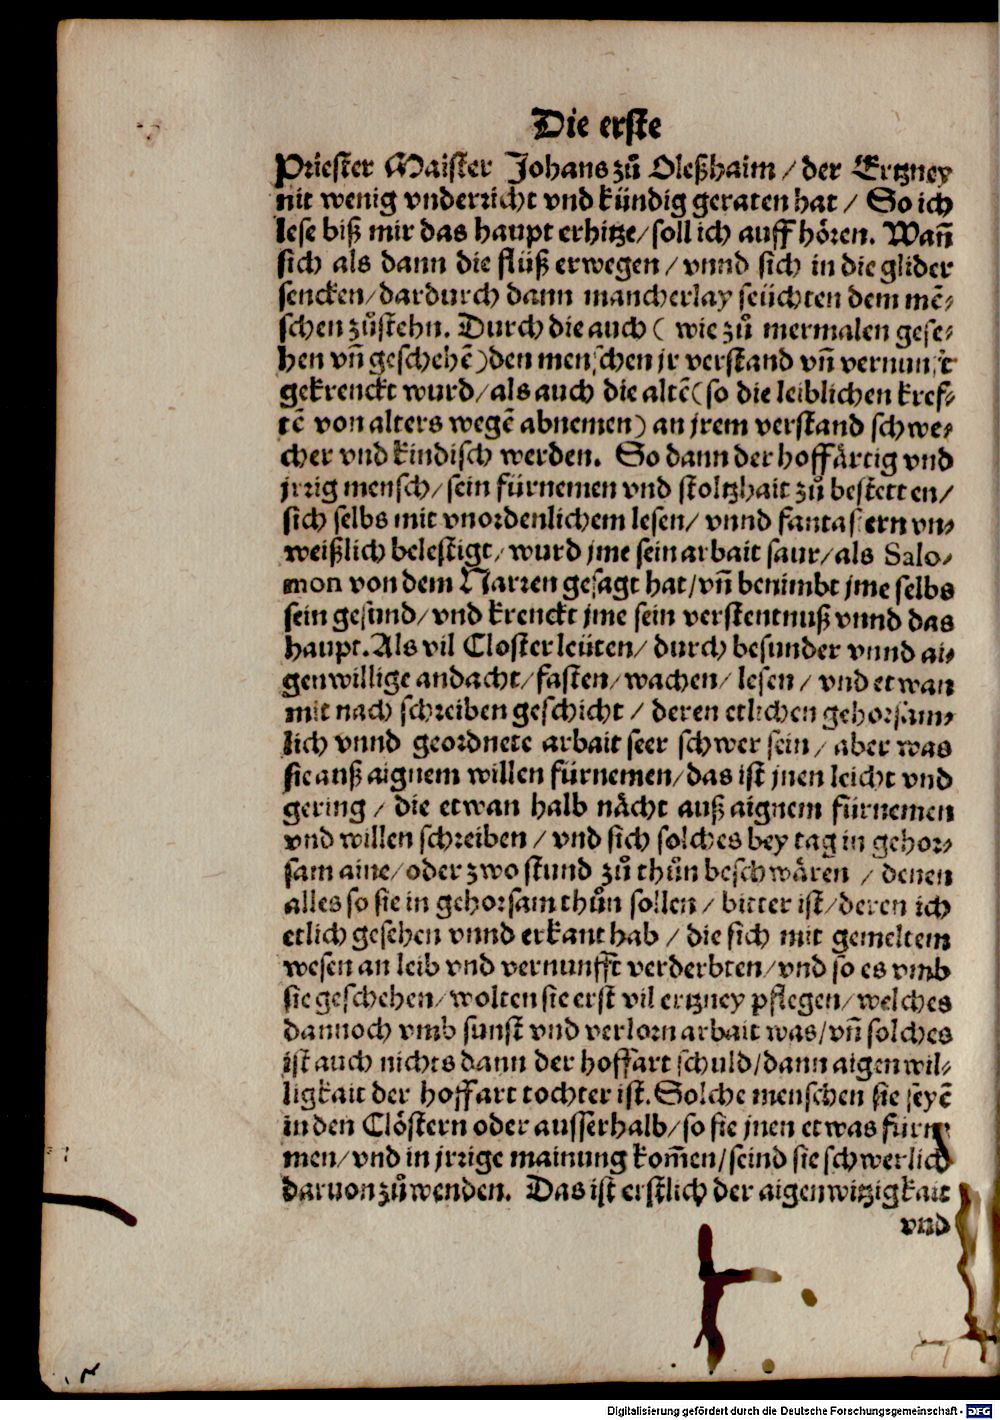 Die erste
Priester Maister Johans zů Oleßhaim / der Ertzney
nit wenig vnderricht vnd kündig geraten hat / So ich
lese biß mir das haupt erhitze / soll ich auff hören. Wañ
sich als dann die flüß erwegen / vnnd sich in die glider
sencken / dardurch dann mancherlay seüchten dem mẽ⸗
schen zůstehn. Durch die auch ( wie zů mermalen gese⸗
hen vñ geschehẽ ) den menschen jr verstand vñ vernunft
gekrenckt wurd / als auch die altẽ ( so die leiblichen kref⸗
tẽ von alters wegẽ abnemen ) an jrem verstand schwe⸗
cher vnd kindisch werden. So dann der hoffärtig vnd
jrrig mensch / sein fürnemen vnd stoltzhait zů bestetten /
sich selbs mit vnordenlichem lesen / vnnd fantasiern vn⸗
weißlich belestigt / wurd jme sein arbait saur / als Salo⸗
mon von dem Narren gesagt hat / vñ benimbt jme selbs
sein gesund / vnd krenckt jme sein verstentnuß vnnd das
haupt. Als vil Closterleüten / durch besunder vnnd ai⸗
genwillige andacht / fasten / wachen / lesen / vnd etwan
mit nach schreiben geschicht / deren etlichen gehorsam⸗
lich vnnd geordnete arbait seer schwer sein / aber was
sie auß aignem willen fürnemen / das ist jnen leicht vnd
gering / die etwan halb nächt auß aignem fürnemen
vnd willen schreiben / vnd sich solches bey tag in gehor⸗
sam aine / oder zwo stund zů thůn beschwären / denen
alles so sie in gehorsam thůn sollen / bitter ist / deren ich
etlich gesehen vnnd erkant hab / die sich mit gemeltem
wesen an leib vnd vernunfft verderbten / vnd so es vmb
sie geschehen / wolten sie erst vil ertzney pflegen / welches
dannoch vmb sunst vnd verlorn arbait was / vñ solches
ist auch nichts dann der hoffart schuld / dann aigenwil⸗
ligkait der hoffart tochter ist. Solche menschen sie seyẽ
in den Clöstern oder ausserhalb / so sie jnen etwas fürne
men / vnd in jrrige mainung kom̃en / seind sie schwerlich
daruon zůwenden. Das ist erstlich der aigenwitzigkait
vnd
Digitalisierung gefördert durch die Deutsche Forschungsgemeinschaft - DFG